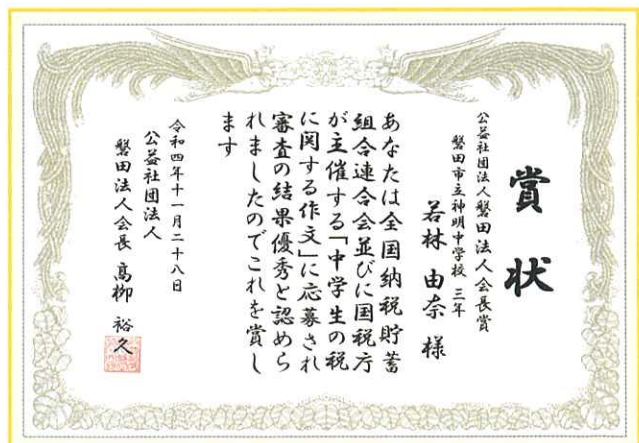 賞状
公益社団法人磐田法人会長賞
磐田市立神明中学校 三年
若林 由奈 様
あなたは全国納税貯蓄
組合連合会並びに国税庁
が主催する「中学生の税
に関する作文」に応募され
審査の結果優秀と認めら
れましたのでこれを賞し
ます
令和四年十一月二十八日
公益社団法人
磐田法人会長 高柳 裕久